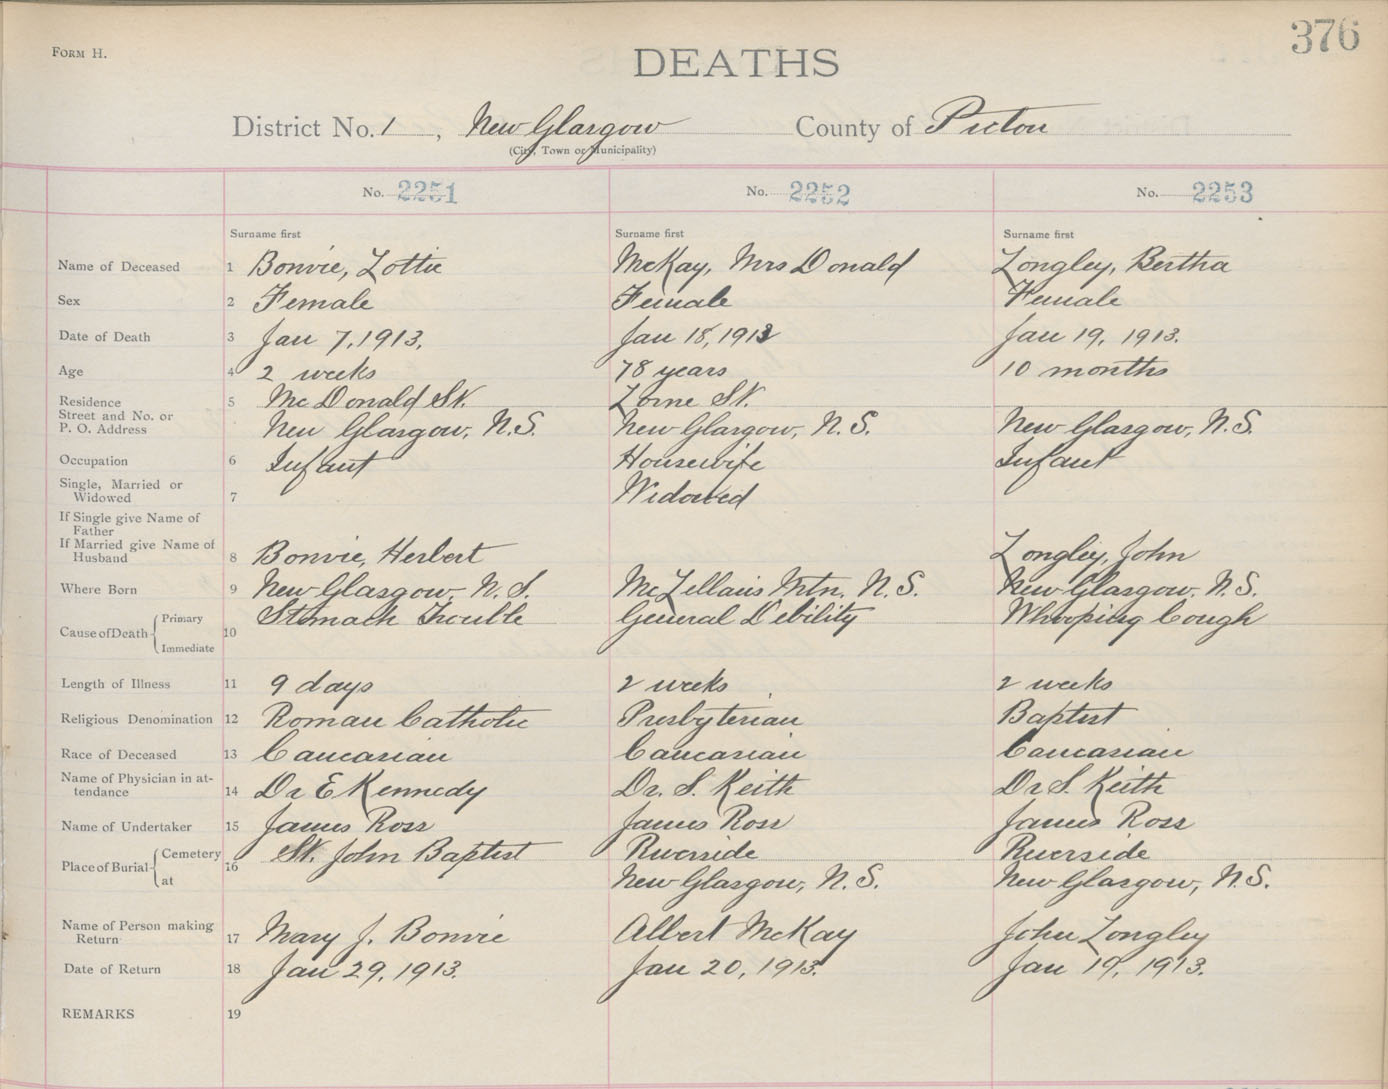 376
FORM H.
DEATHS
District No. 1, New Glasgow County of Pictou
(City, Town or Municipality)
No. 2251 No. 2252 No. 2253
Surname first Surname first Surname first
Name of Deceased 1 Bonvie, Lottie McKay, Mrs Donald Longley, Bertha
Sex 2 Female Female Female
Date of Death 3 Jan 7, 1913. Jan 18, 1913 Jan 19, 1913.
Age 4 2 weeks 78 years 10 months
Residence 5 McDonald St. Lorne St.
Street and No. or
P. O. Address New Glasgow, N.S. New Glasgow, N.S. New Glasgow, N.S.
Occupation 6 Infant Housewife Infant
Single, Married or
Widowed 7 Widowed
If Single give Name of
Father
If Married give Name of
Husband 8 Bonvie, Herbert Longley, John
Where Born 9 New Glasgow, N.S. McLellans Mtn. N.S. New Glasgow, N.S.
Cause of Death { Primary Stomach Trouble General Debility Whooping Cough
10
Immediate
Length of Illness 11 9 days 2 weeks 2 weeks
Religious Denomination 12 Roman Catholic Presbyterian Baptist
Race of Deceased 13 Caucasian Caucasian Caucasian
Name of Physician in at-
tendance 14 Dr E Kennedy Dr. S. Keith Dr S. Keith
Name of Undertaker 15 James Ross James Ross James Ross
Place of Burial { Cemetery 16 St. John Baptist Riverside Riverside
at New Glasgow, N.S. New Glasgow, N.S.
Name of Person making
Return 17 Mary J. Bonvie Albert McKay John Longley
Date of Return 18 Jan 29, 1913. Jan 20, 1913. Jan 19, 1913.
REMARKS 19